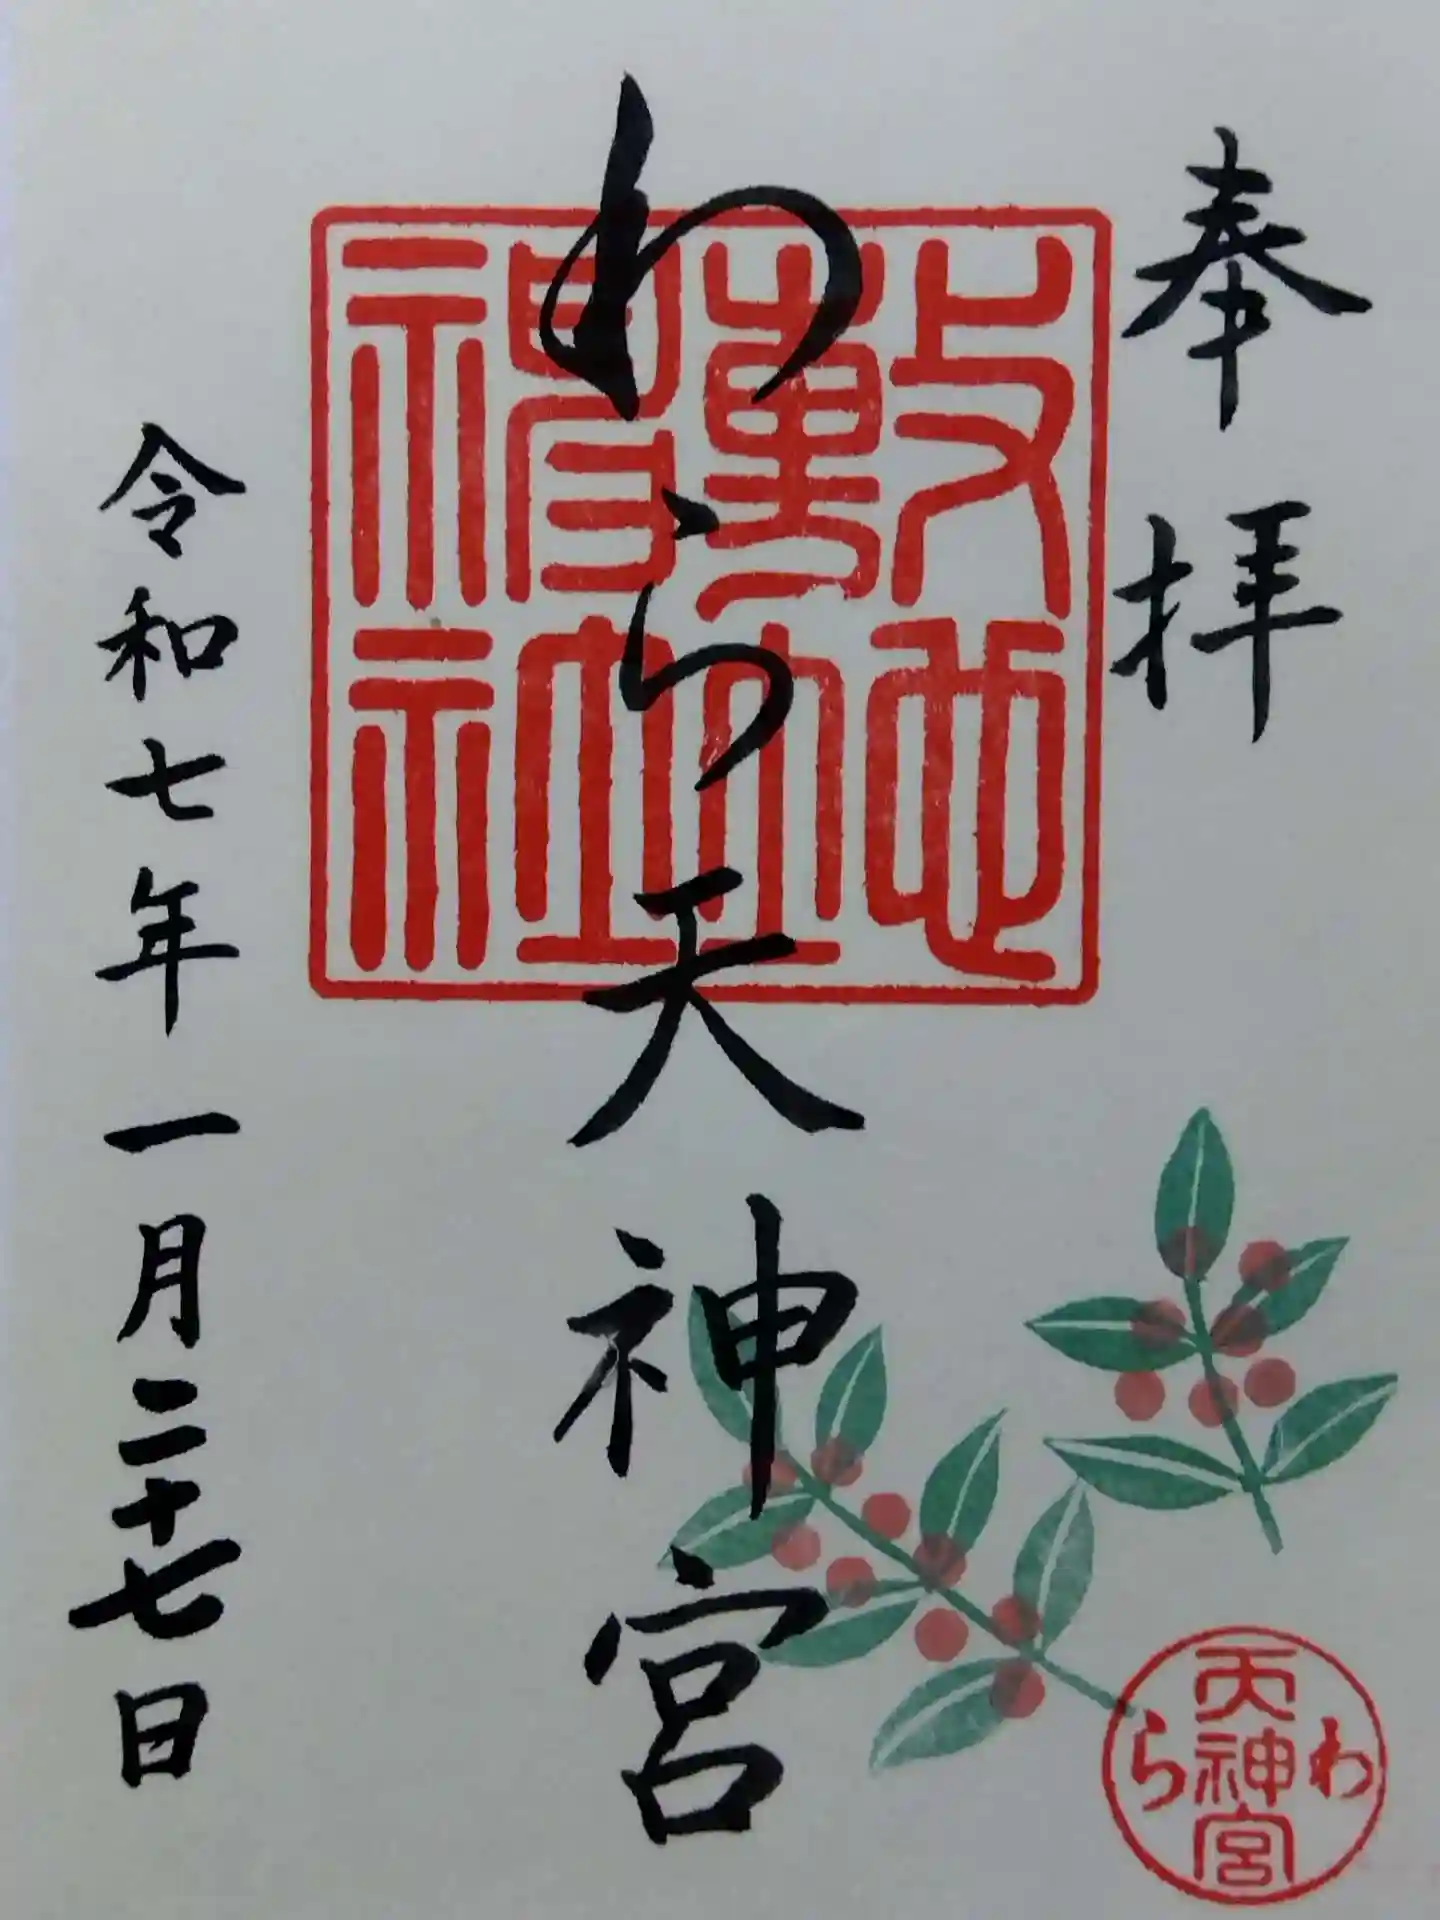 奉拝
敷地神社
わら天神宮
令和七年一月二十七日
わら天神宮